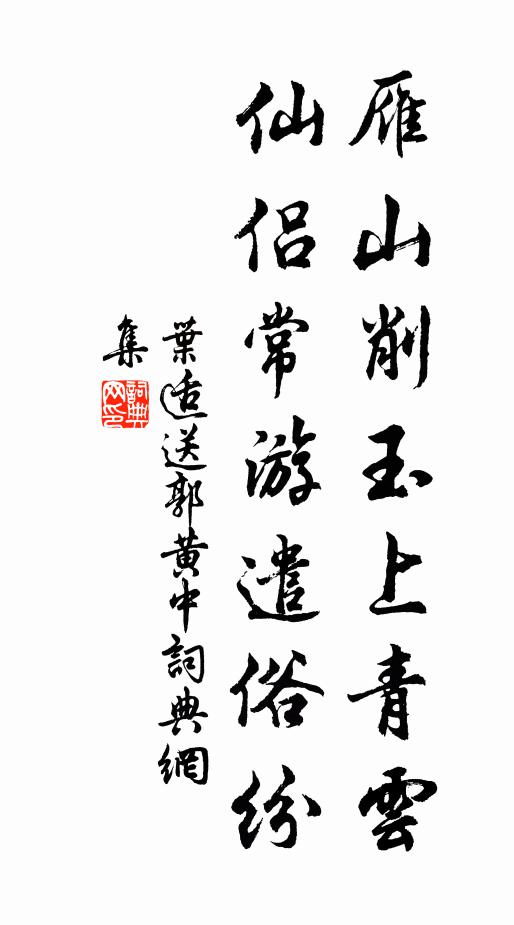 雁山削玉上青雲
仙侣常游遣俗紛
葉适送郭黄中詞典網
集
詞典網印